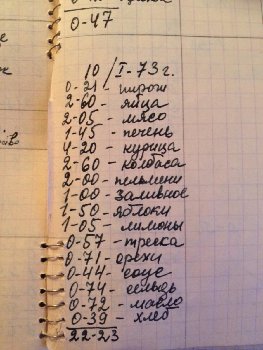 0-47
10/I-73г.
0-21-пирож
2-60-яйца
2-05-мясо
1-45-печень
4-20-курица
2-60-колбаса
2-00-пельмени
1-00-заливное
1-50-яблоки
1-05-лимоны
0-57-треска
0-71-орехи
0-44-соус
0-74-сельдь
0-72-масло
0-39-хлеб
22-23